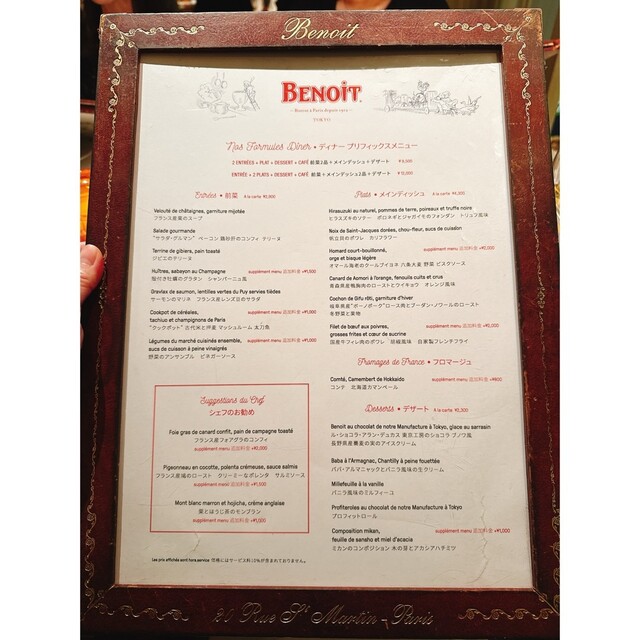 Benoit
BENOIT
TOKYO
Nos Formules Dîner • ディナー プリフィックスメニュー
2 ENTRÉES + PLAT + DESSERT + CAFÉ 前菜2品+メインディッシュ+デザート
ENTRÉE + 2 PLATS + DESSERT + CAFÉ 前菜+メインディッシュ2品+デザート
Entrées • 前菜 A la carte
Velouté de châtaignes, garniture mijotée
フランス産栗のスープ
Salade gourmande
"サラダ・グルマン" ベーコン 鶏砂肝のコンフィ テリーヌ
Terrine de gibiers, pain toasté
ジビエのテリーヌ
Huîtres, sabayon au Champagne supplément menu 追加料金 +¥1,500
殻付き牡蠣のグラタン シャンパーニュ風
Gravlax de saumon, lentilles vertes du Puy servies tièdes
サーモンのマリネ フランス産レンズ豆のサラダ
Cookpot de céréales, supplément menu 追加料金 +¥1,000
tachiuo et champignons de Paris
"クックポット" 古代米と押麦 マッシュルーム 太刀魚
Légumes du marché cuisinés ensemble, supplément menu 追加料金 +¥1,000
sucs de cuisson à peine vinaigrés
野菜のアンサンブル ビネガーソース
Suggestions du Chef
シェフのお勧め
Foie gras de canard confit, pain de campagne toasté
フランス産フォアグラのコンフィ
supplément menu 追加料金
Pigeonneau en cocotte, polenta crémeuse, sauce salmis
フランス産鳩のロースト クリーミーなポレンタ サルミソース
supplément menu 追加料金
Mont blanc marron et hojicha, crème anglaise
栗とほうじ茶のモンブラン
supplément menu 追加料金 +¥1,000
Les prix affichés sont hors service
Plats • メインディッシュ A la carte
Hirasuzuki au naturel, pommes de terre, poireaux et truffe noire
ヒラスズキのソテー ポロネギとジャガイモのフォンダン トリュフ風味
Noix de Saint-Jacques dorées, chou-fleur, sucs de cuisson
帆立貝のポワレ カリフラワー
Homard court-bouillonné, supplément menu 追加料金
orge et bisque légère
オマール海老のクールブイヨネ 八条大麦 野菜 ビスクソース
Canard de Aomori à l'orange, fenouils cuits et crus
青森県産鴨胸肉のローストとウイキョウ オレンジ風味
Cochon de Gifu rôti, garniture d'hiver
岐阜県産"ボーノポーク"ロース肉とブーダン・ノワールのロースト
冬野菜と果物
Filet de bœuf aux poivres, supplément menu 追加料金
grosses frites et cœur de sucrine
国産牛フィレ肉のポワレ 胡椒風味 自家製フレンチフライ
Fromages de France • フロマージュ
Comté, Camembert de Hokkaido supplément menu 追加料金 +¥800
コンテ 北海道カマンベール
Desserts • デザート A la carte
Benoit au chocolat de notre Manufacture à Tokyo, glace au sarrasin
ル・ショコラ・アラン・デュカス 東京工房のショコラ ブノワ風
長野県産蕎麦の実のアイスクリーム
Baba à l'Armagnac, Chantilly à peine fouettée
ババ・アルマニャックとバニラ風味の生クリーム
Millefeuille à la vanille
バニラ風味のミルフィーユ
Profiteroles au chocolat de notre Manufacture à Tokyo
プロフィットロール
Composition mikan, supplément menu 追加料金 +¥1,000
feuille de sansho et miel d'acacia
ミカンのコンポジション 木の芽とアカシアハチミツ
20 Rue St Martin - Paris